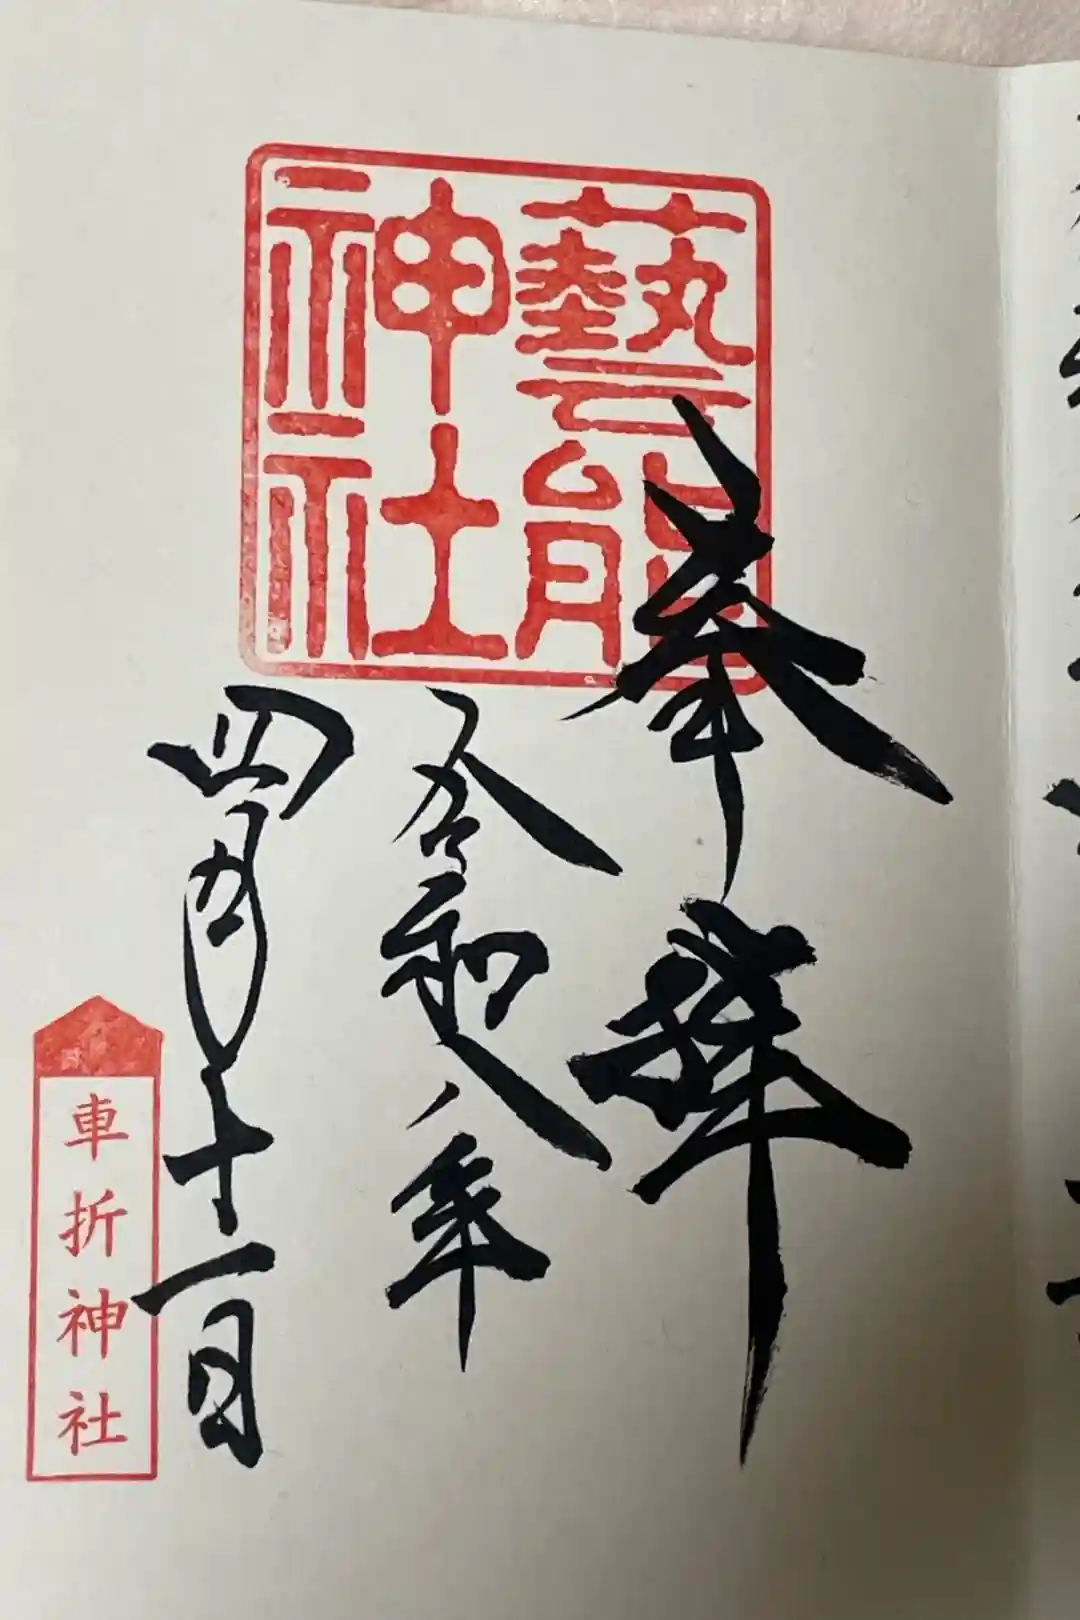 奉拝
藝能
神社
令和八年
四月十一日
車折神社